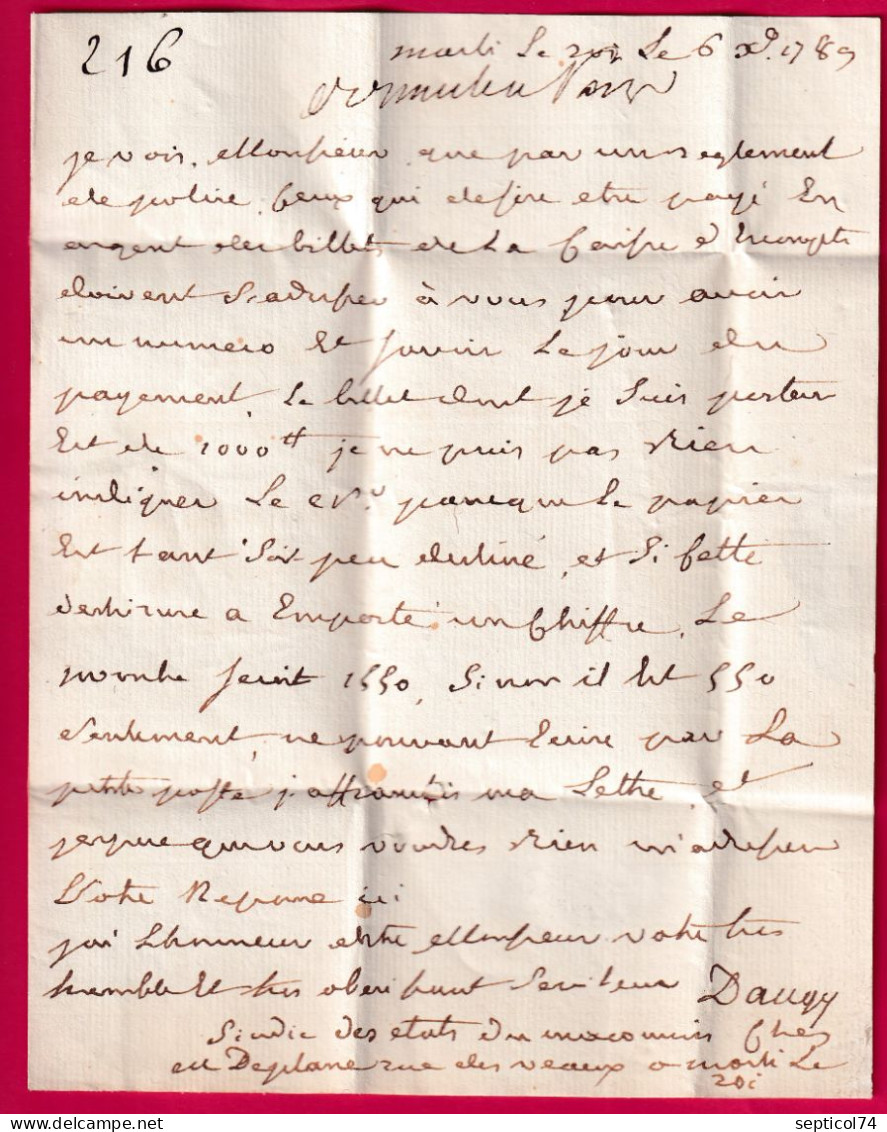 216
marli Le roi Le 6 xbr 1789
je vois, Monsieur que par un reglement
de police ceux qui desire etre payé En
argent des billets de La Caisse d'Escompte
doivent s'adresser à vous pour avoir
un numero Et savoir Le jour du
payement, Le billet dont je suis porteur
Est de 1000 tt je ne puis pas bien
indiquer Le No. parceque Le papier
Est tant soit peu dechiré, et si cette
dechirure a Emporté un Chiffre, Le
nombre seroit 1550, sinon il Est 550
seulement, ne pouvant Ecrire par La
petite poste j'affranchis ma Lettre, et
j'espere que vous voudres bien m'adresser
Votre Reponse ici
j'ai L'honneur d'etre Monsieur votre tres
humble Et tres obeissant serviteur Daugy
Sindic des etats du maconnois Chez
M Deplane rue des veaux a marli Le
roi
septicol74